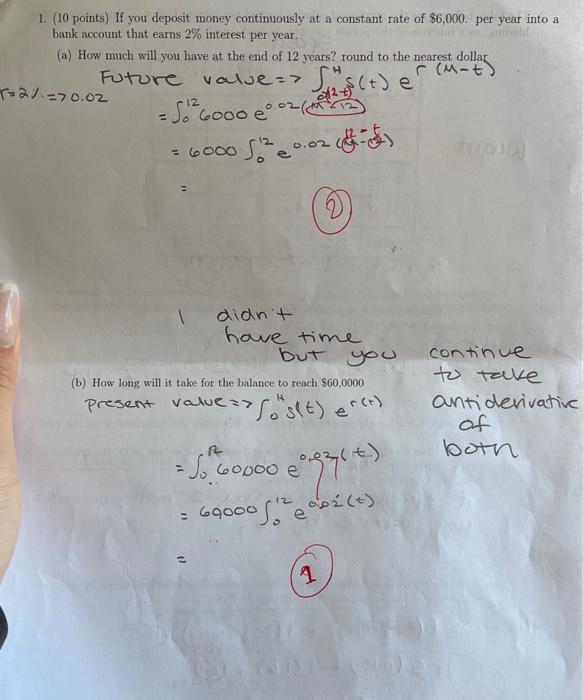 1. (10 points) If you deposit money continuously at a constant rate of $6,000. per year into a
bank account that earns 2% interest per year.
(a) How much will you have at the end of 12 years? round to the nearest dollar
Future value => ∫₀ᴹ s(t) e^r(M-t)
r=2% => 0.02
= ∫₀¹² 6000 e^0.02(M-12)
(12-t)
= 6000 ∫₀¹² e^0.02(12-t)
=
2
I didn't
have time
but you continue
to take
antiderivative
of
both
(b) How long will it take for the balance to reach $60,0000
present value => ∫₀ᴹ s(t) e^r(t)
= ∫₀¹² 60000 e^0.02(t)
= 60000 ∫₀¹² e^0.02(t)
=
1